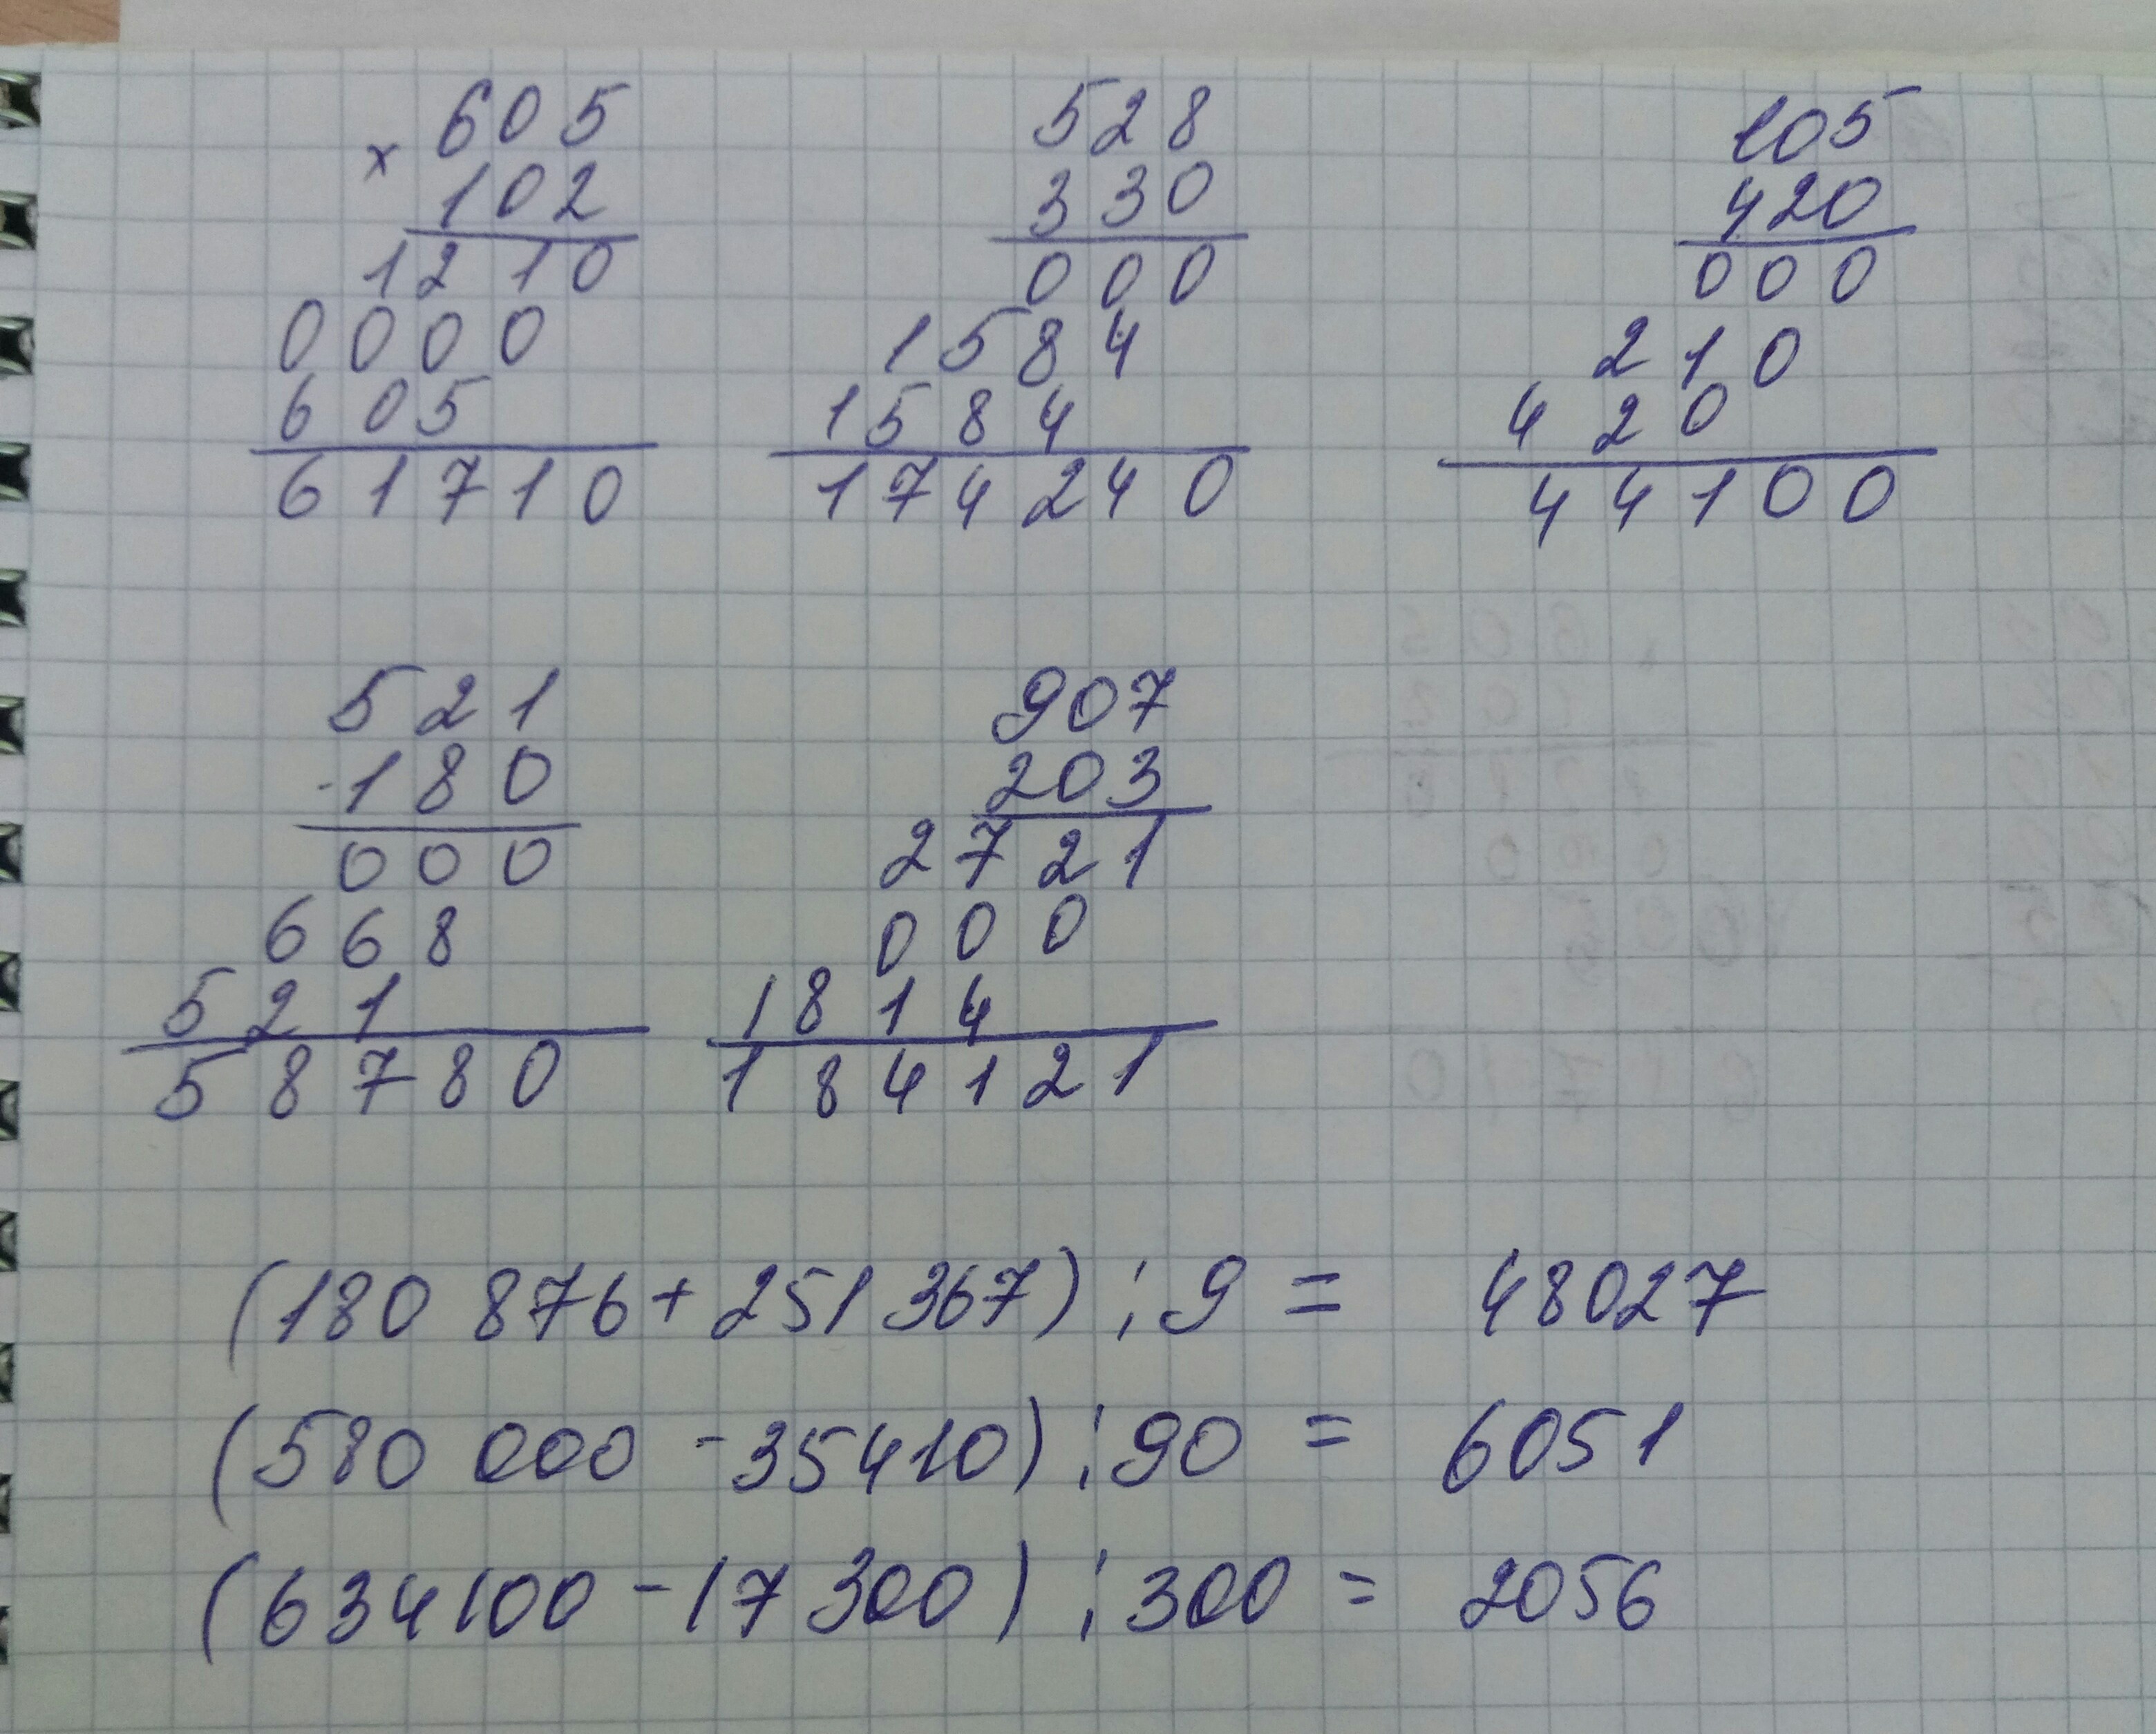 × 605
102
1210
0000
605
61710
528
330
000
1584
1584
174240
105
420
000
210
420
44100
521
·180
000
668
521
58780
907
203
2721
000
1814
184121
(180 876 + 251 367) : 9 = 48027
(580 000 - 35410) : 90 = 6051
(634100 - 17 300) : 300 = 2056